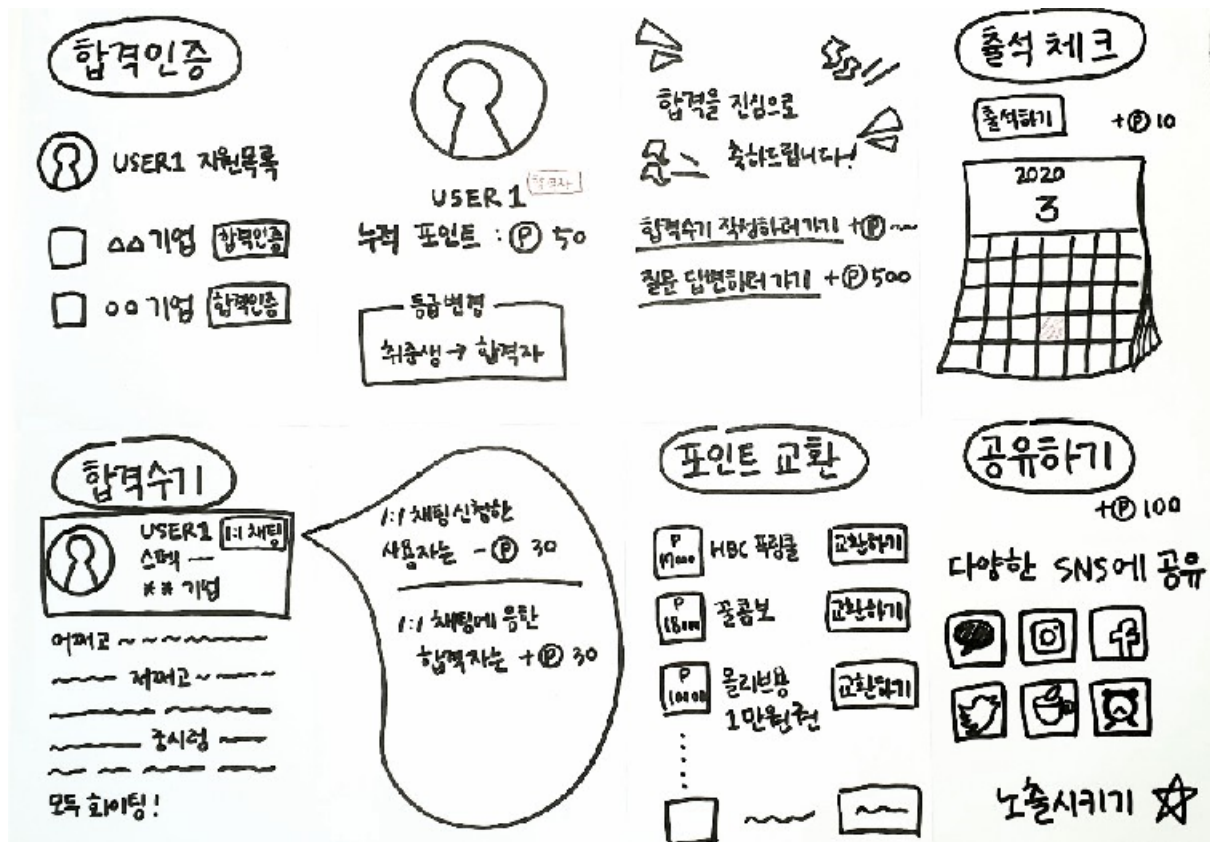 합격인증
USER1 지원목록
△△기업 합격인증
○○기업 합격인증
USER1 합격자
누적 포인트 : Ⓟ 50
등급변경
취준생 → 합격자
합격을 진심으로
축하드립니다!
합격수기 작성하러가기 +Ⓟ~~
질문 답변하러가기 +Ⓟ500
출석 체크
출석하기 +Ⓟ10
2020
3
합격수기
USER1 1:1 채팅
스펙 —
** 기업
어쩌고 ~~~~~~
~~~~ 저쩌고~~~~
~~~~ 중시렁 ~~~
모두 화이팅!
1:1 채팅신청한
사용자는 -Ⓟ 30
1:1 채팅에 응한
합격자는 +Ⓟ 30
포인트 교환
P HBC 폭립쿨 교환하기
P 꿀콤보 교환하기
P 10000 몰리브용 교환하기
1만원권
공유하기
+Ⓟ100
다양한 SNS에 공유
노출시키기 ☆